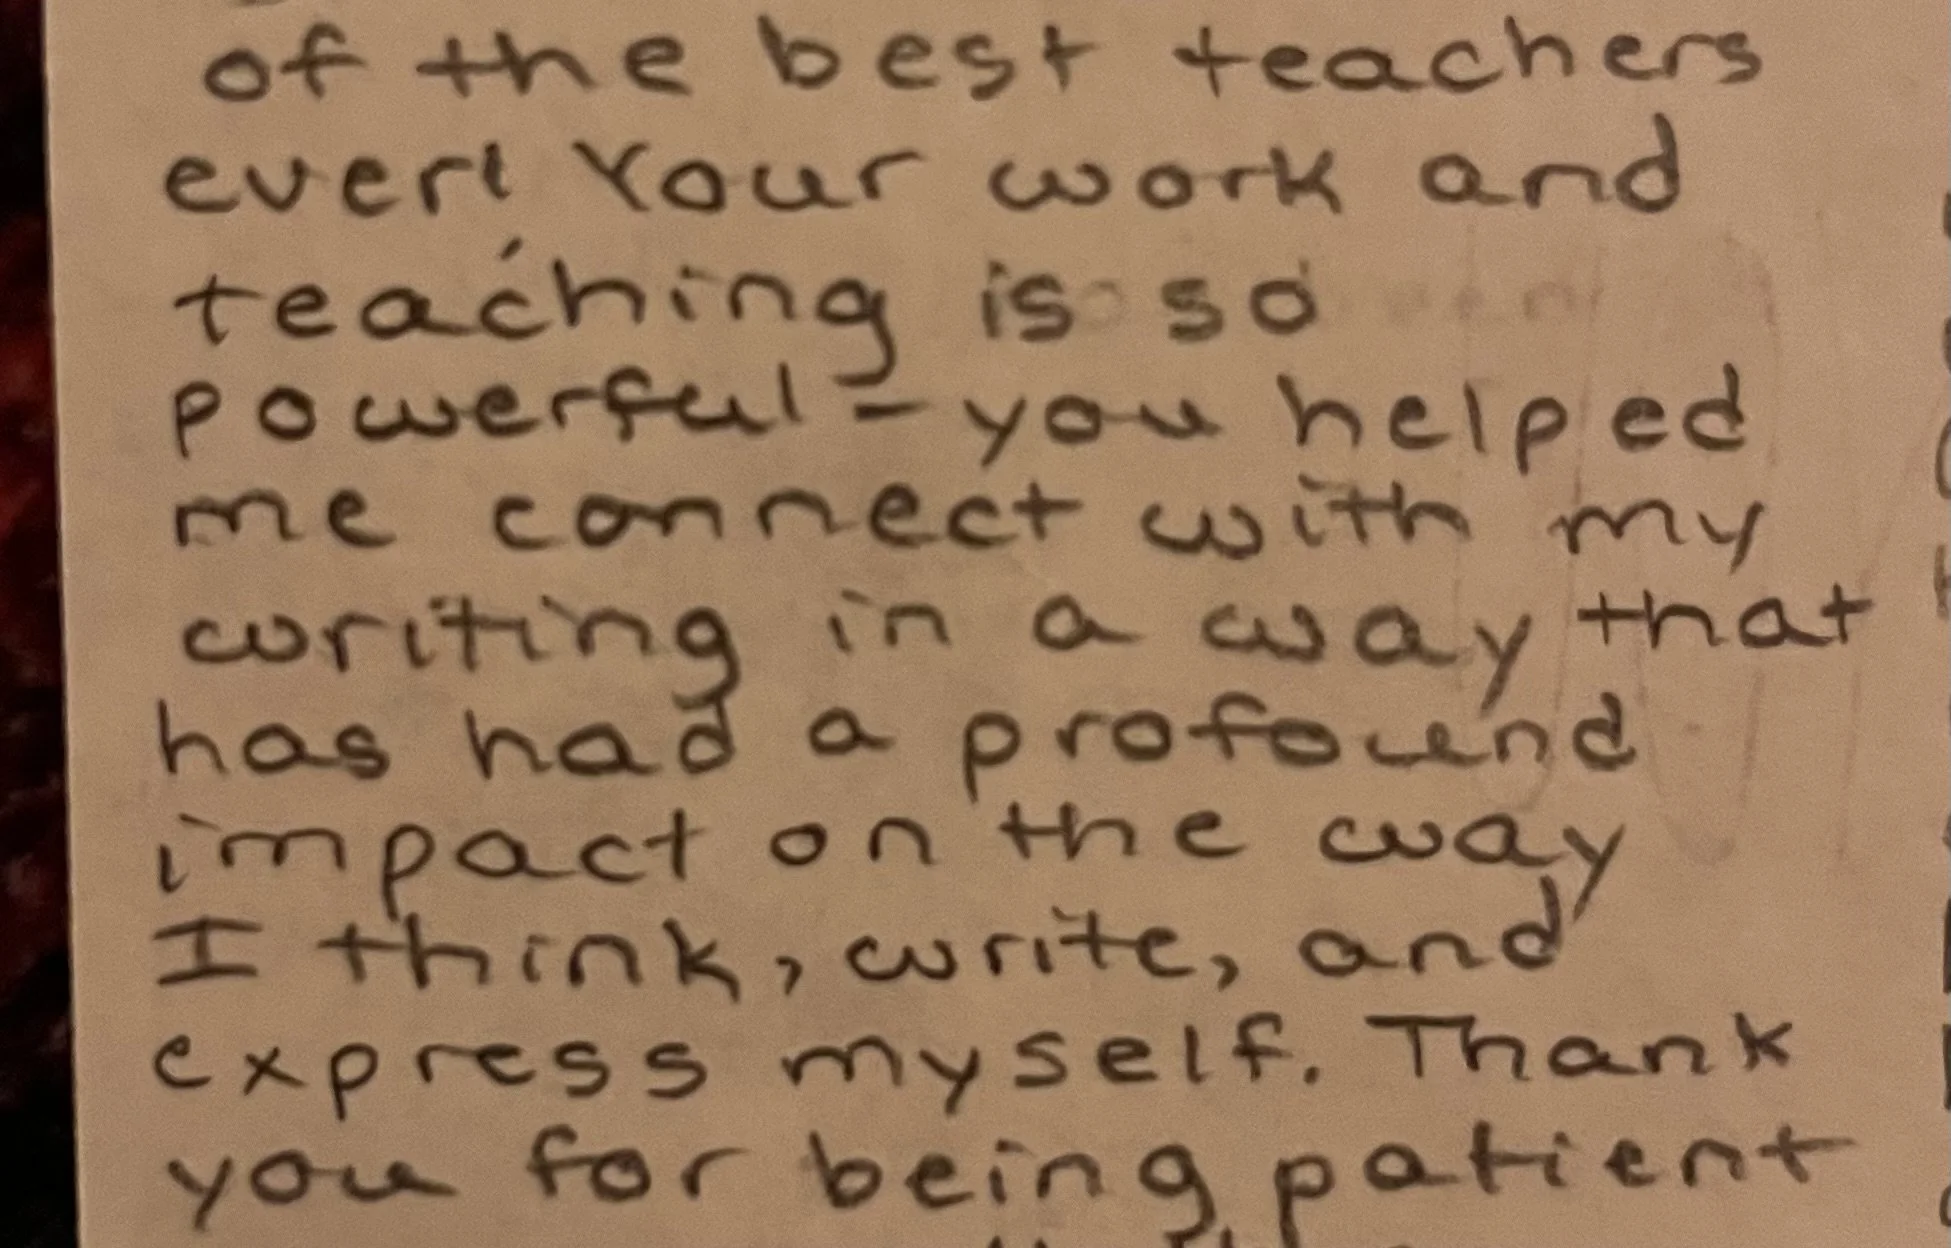 of the best teachers
ever! Your work and
teaching is so
powerful - you helped
me connect with my
writing in a way that
has had a profound
impact on the way
I think, write, and
express myself. Thank
you for being patient